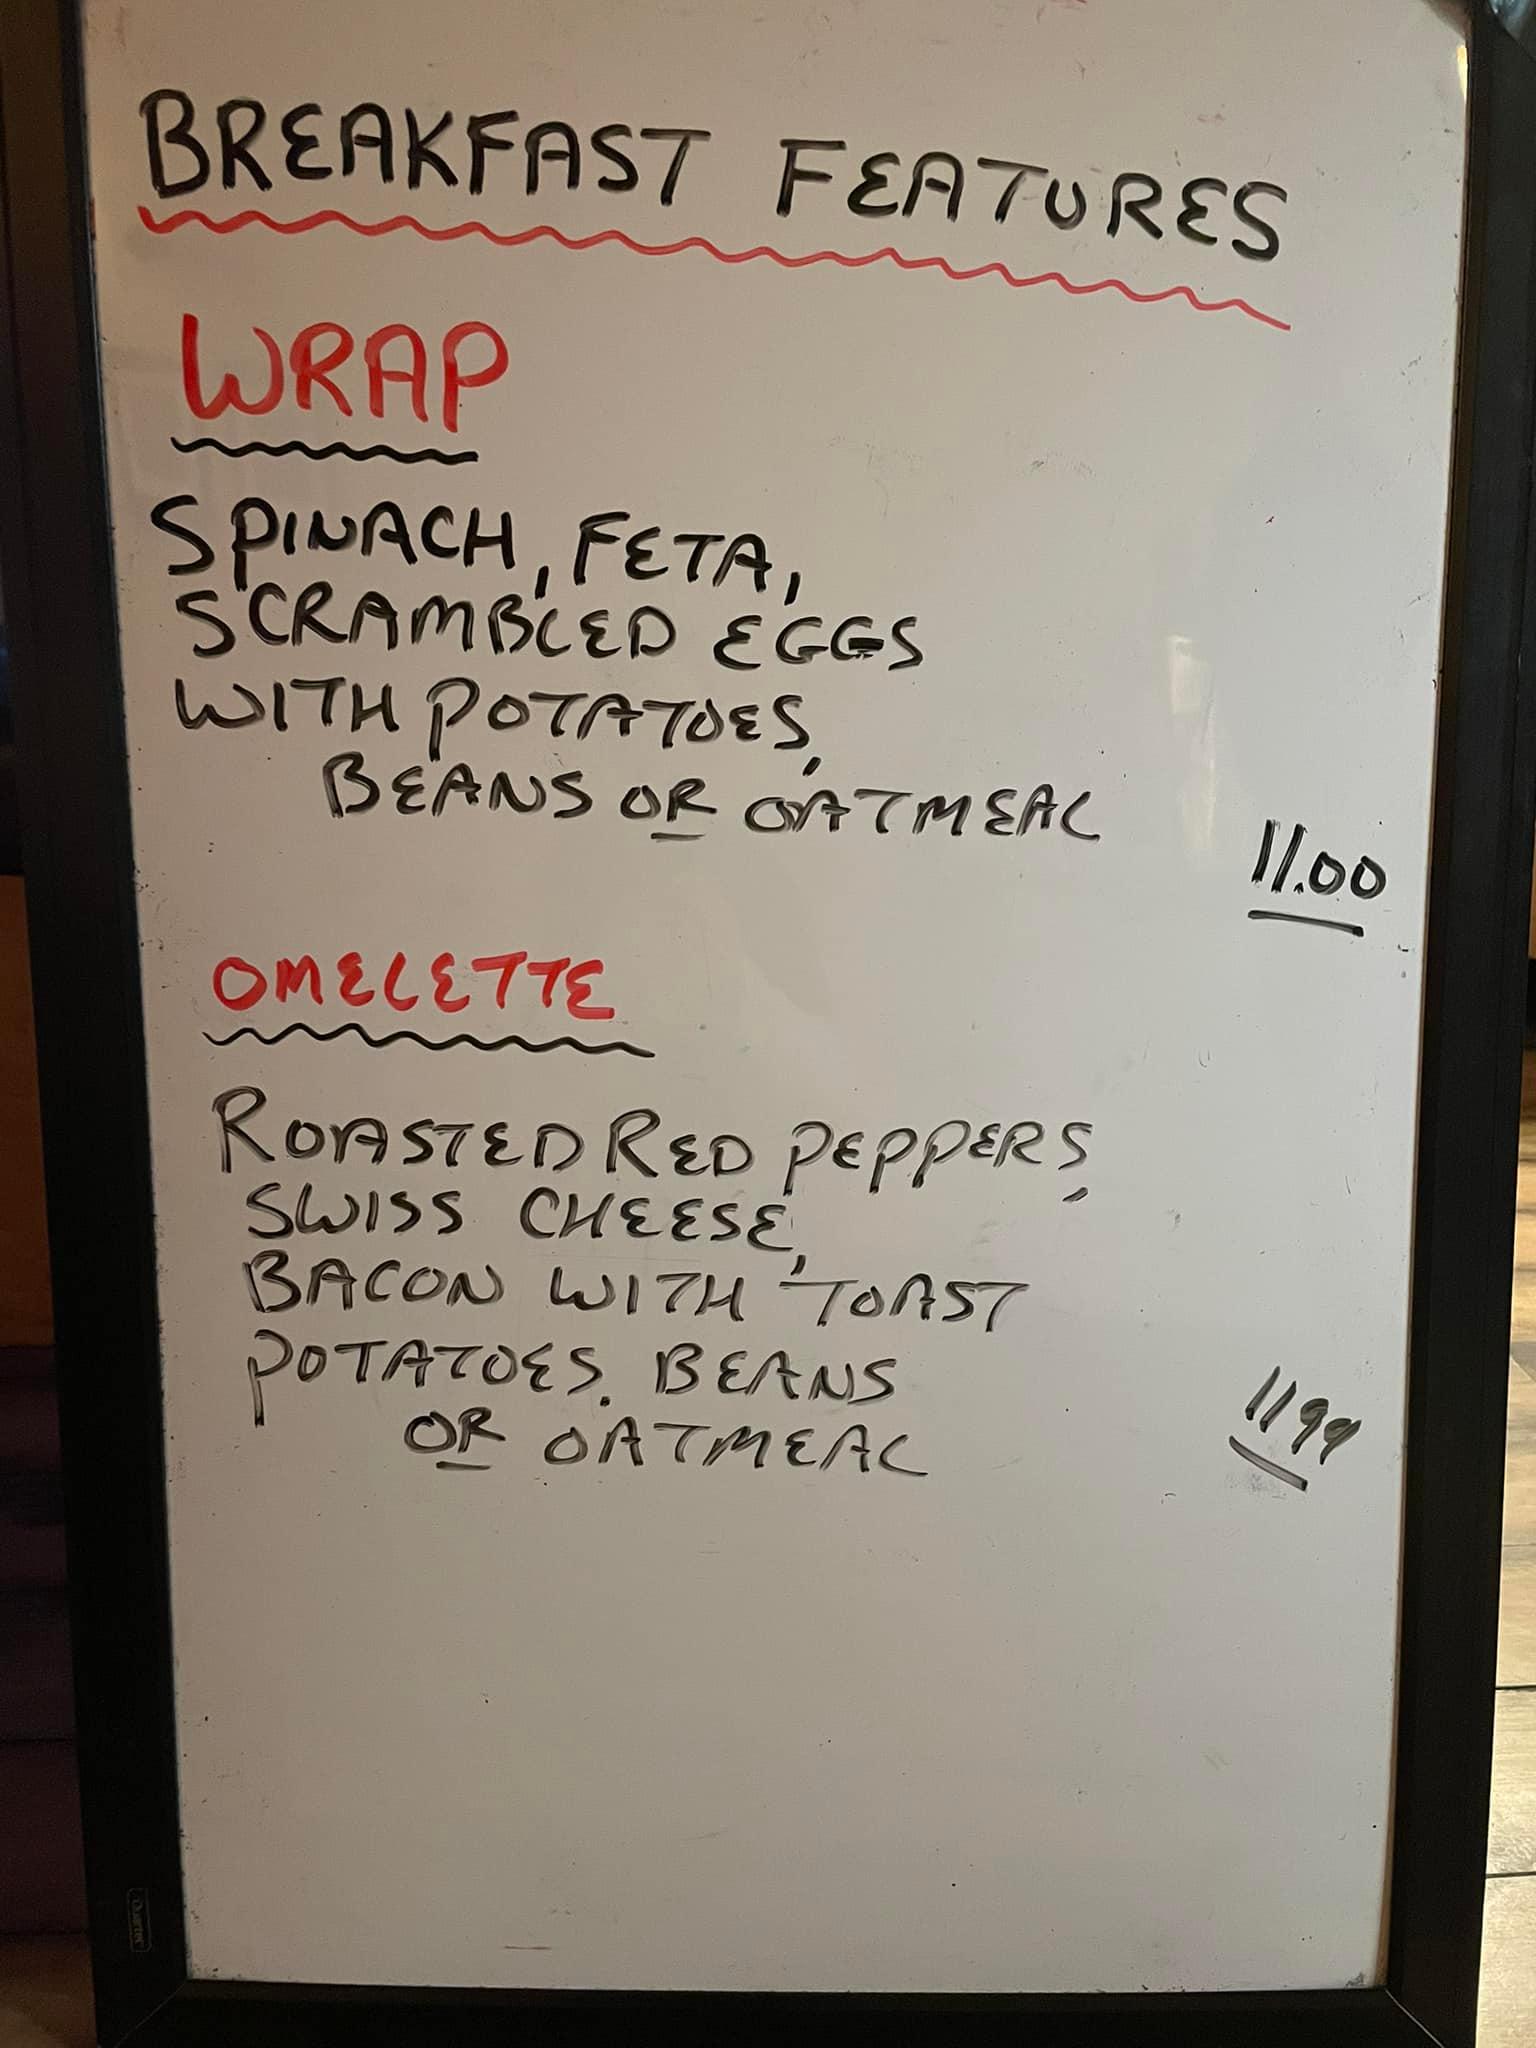 BREAKFAST FEATURES
WRAP
SPINACH, FETA,
SCRAMBLED EGGS
WITH POTATOES,
BEANS OR OATMEAL
11.00
OMELETTE
ROASTED RED PEPPERS,
SWISS CHEESE,
BACON WITH TOAST
POTATOES. BEANS
OR OATMEAL
11 99
Quartet